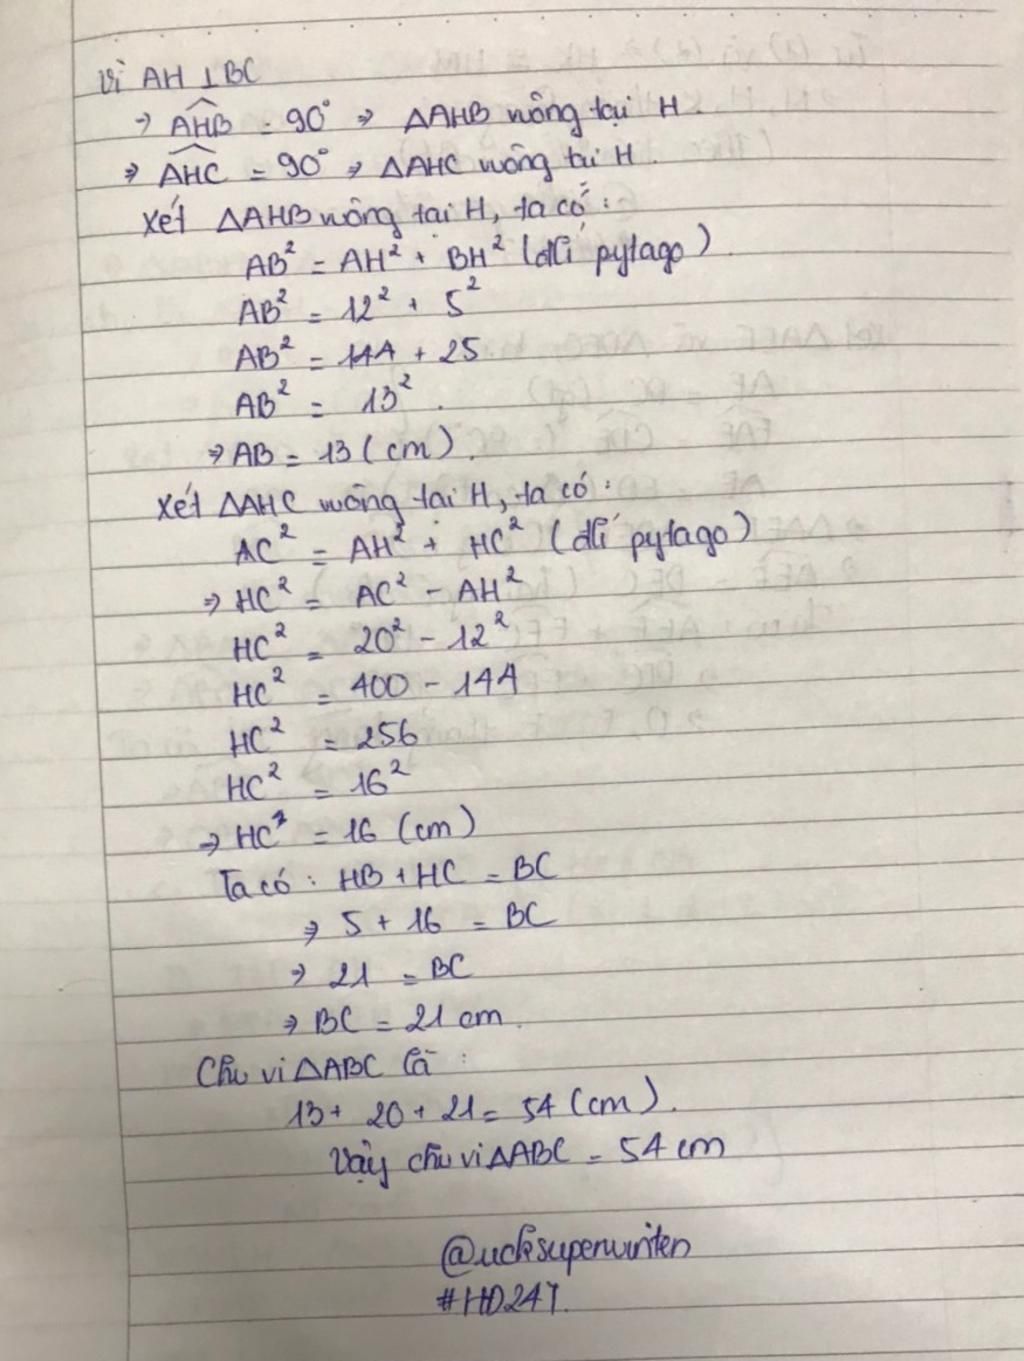 Vì AH ⊥ BC
→ AHB = 90° ⇒ ΔAHB vuông tại H.
⇒ AHC = 90° ⇒ ΔAHC vuông tại H.
Xét ΔAHB vuông tại H, ta có:
AB² = AH² + BH² (đlí pytago)
AB² = 12² + 5²
AB² = 144 + 25
AB² = 13².
⇒ AB = 13 (cm).
Xét ΔAHC vuông tại H, ta có:
AC² = AH² + HC² (đlí pytago)
⇒ HC² = AC² - AH²
HC² = 20² - 12²
HC² = 400 - 144
HC² = 256
HC² = 16²
⇒ HC² = 16 (cm)
Ta có: HB + HC = BC
⇒ 5 + 16 = BC
⇒ 21 = BC
⇒ BC = 21 cm.
Chu vi ΔABC là:
13 + 20 + 21 = 54 (cm).
Vậy chu vi ΔABC = 54 cm
#HD247.